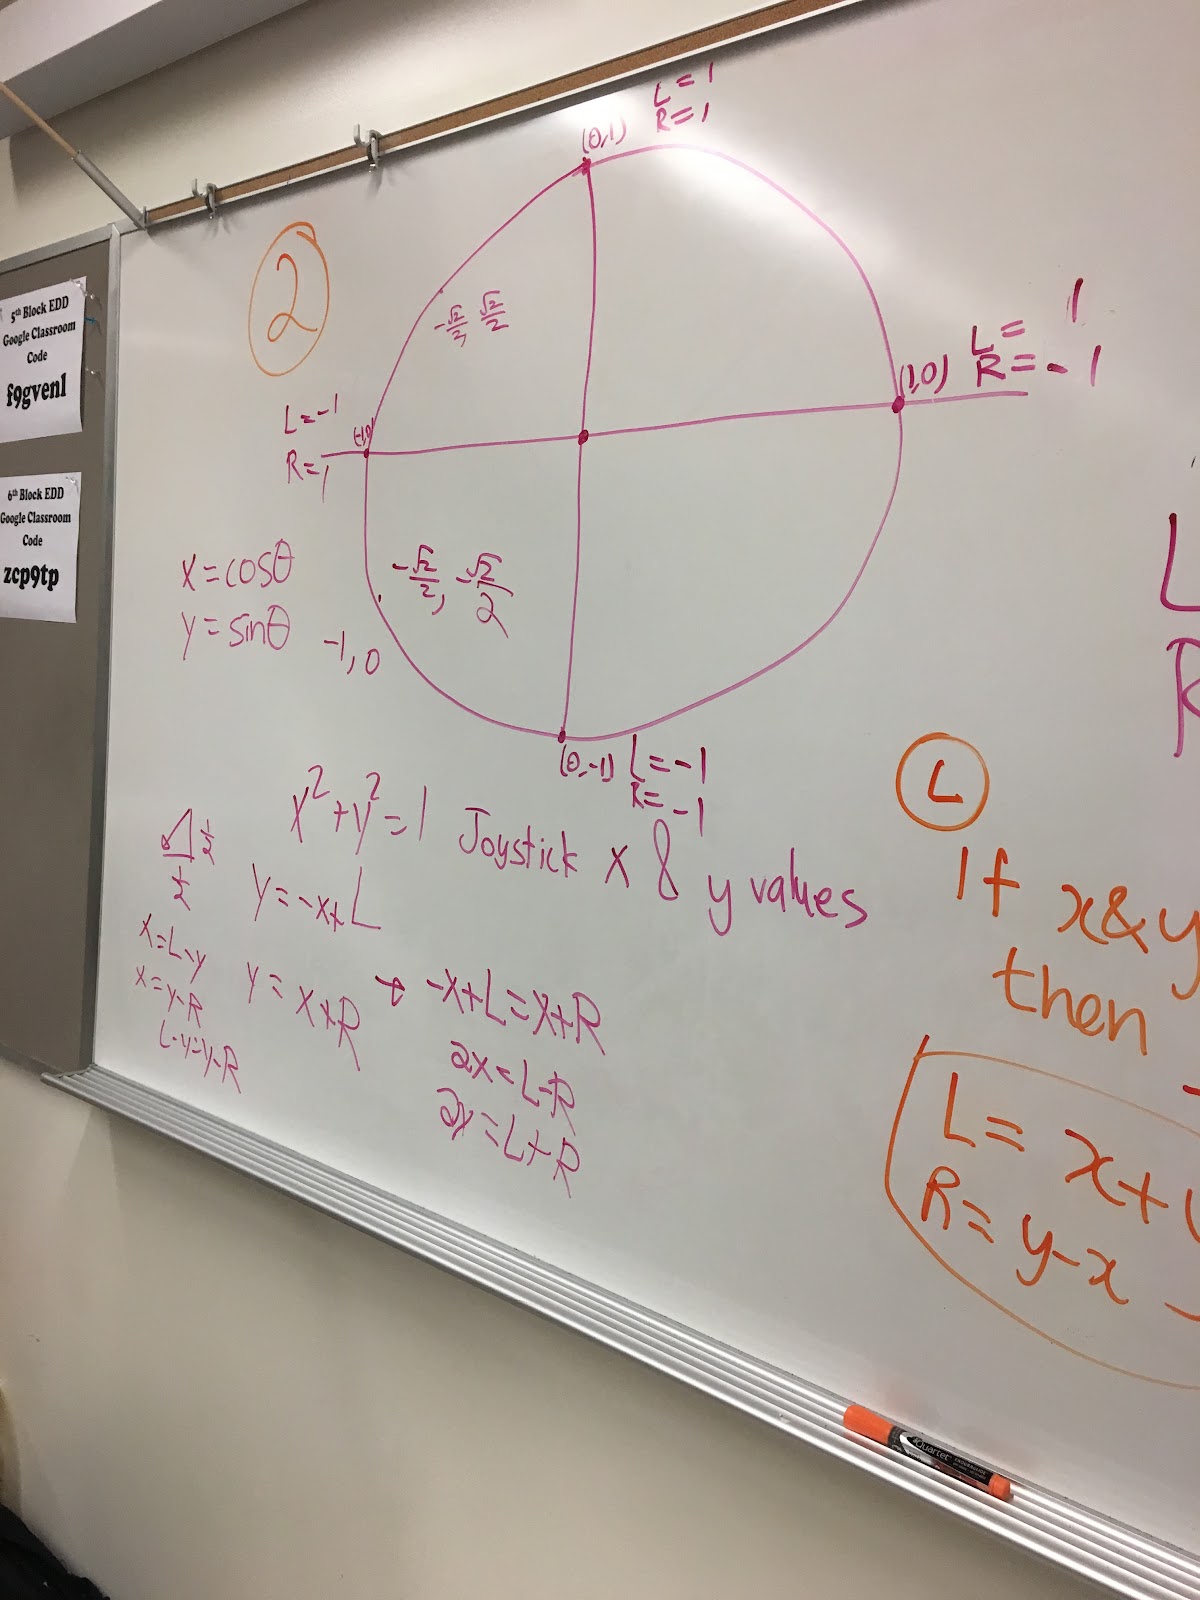 5th Block EDD
Google Classroom
Code
f9gvenl
6th Block EDD
Google Classroom
Code
zcp9tp
2
(0,1)
L = 1
R = 1
-√2/2, √2/2
L = -1
R = 1
(-1,0)
(1,0)
L = 1
R = -1
x = cosθ
y = sinθ
-1, 0
-√2/2, -√2/2
(0,-1)
L = -1
R = -1
x² + y² = 1
Joystick x & y values
1/2
1/2
y = -x + L
x = L - y
x = y - R
L - y = y - R
y = x + R → -x + L = x + R
2x = L - R
2y = L + R
L
R
L
If x & y
then
L = x + y
R = y - x -
Quartet